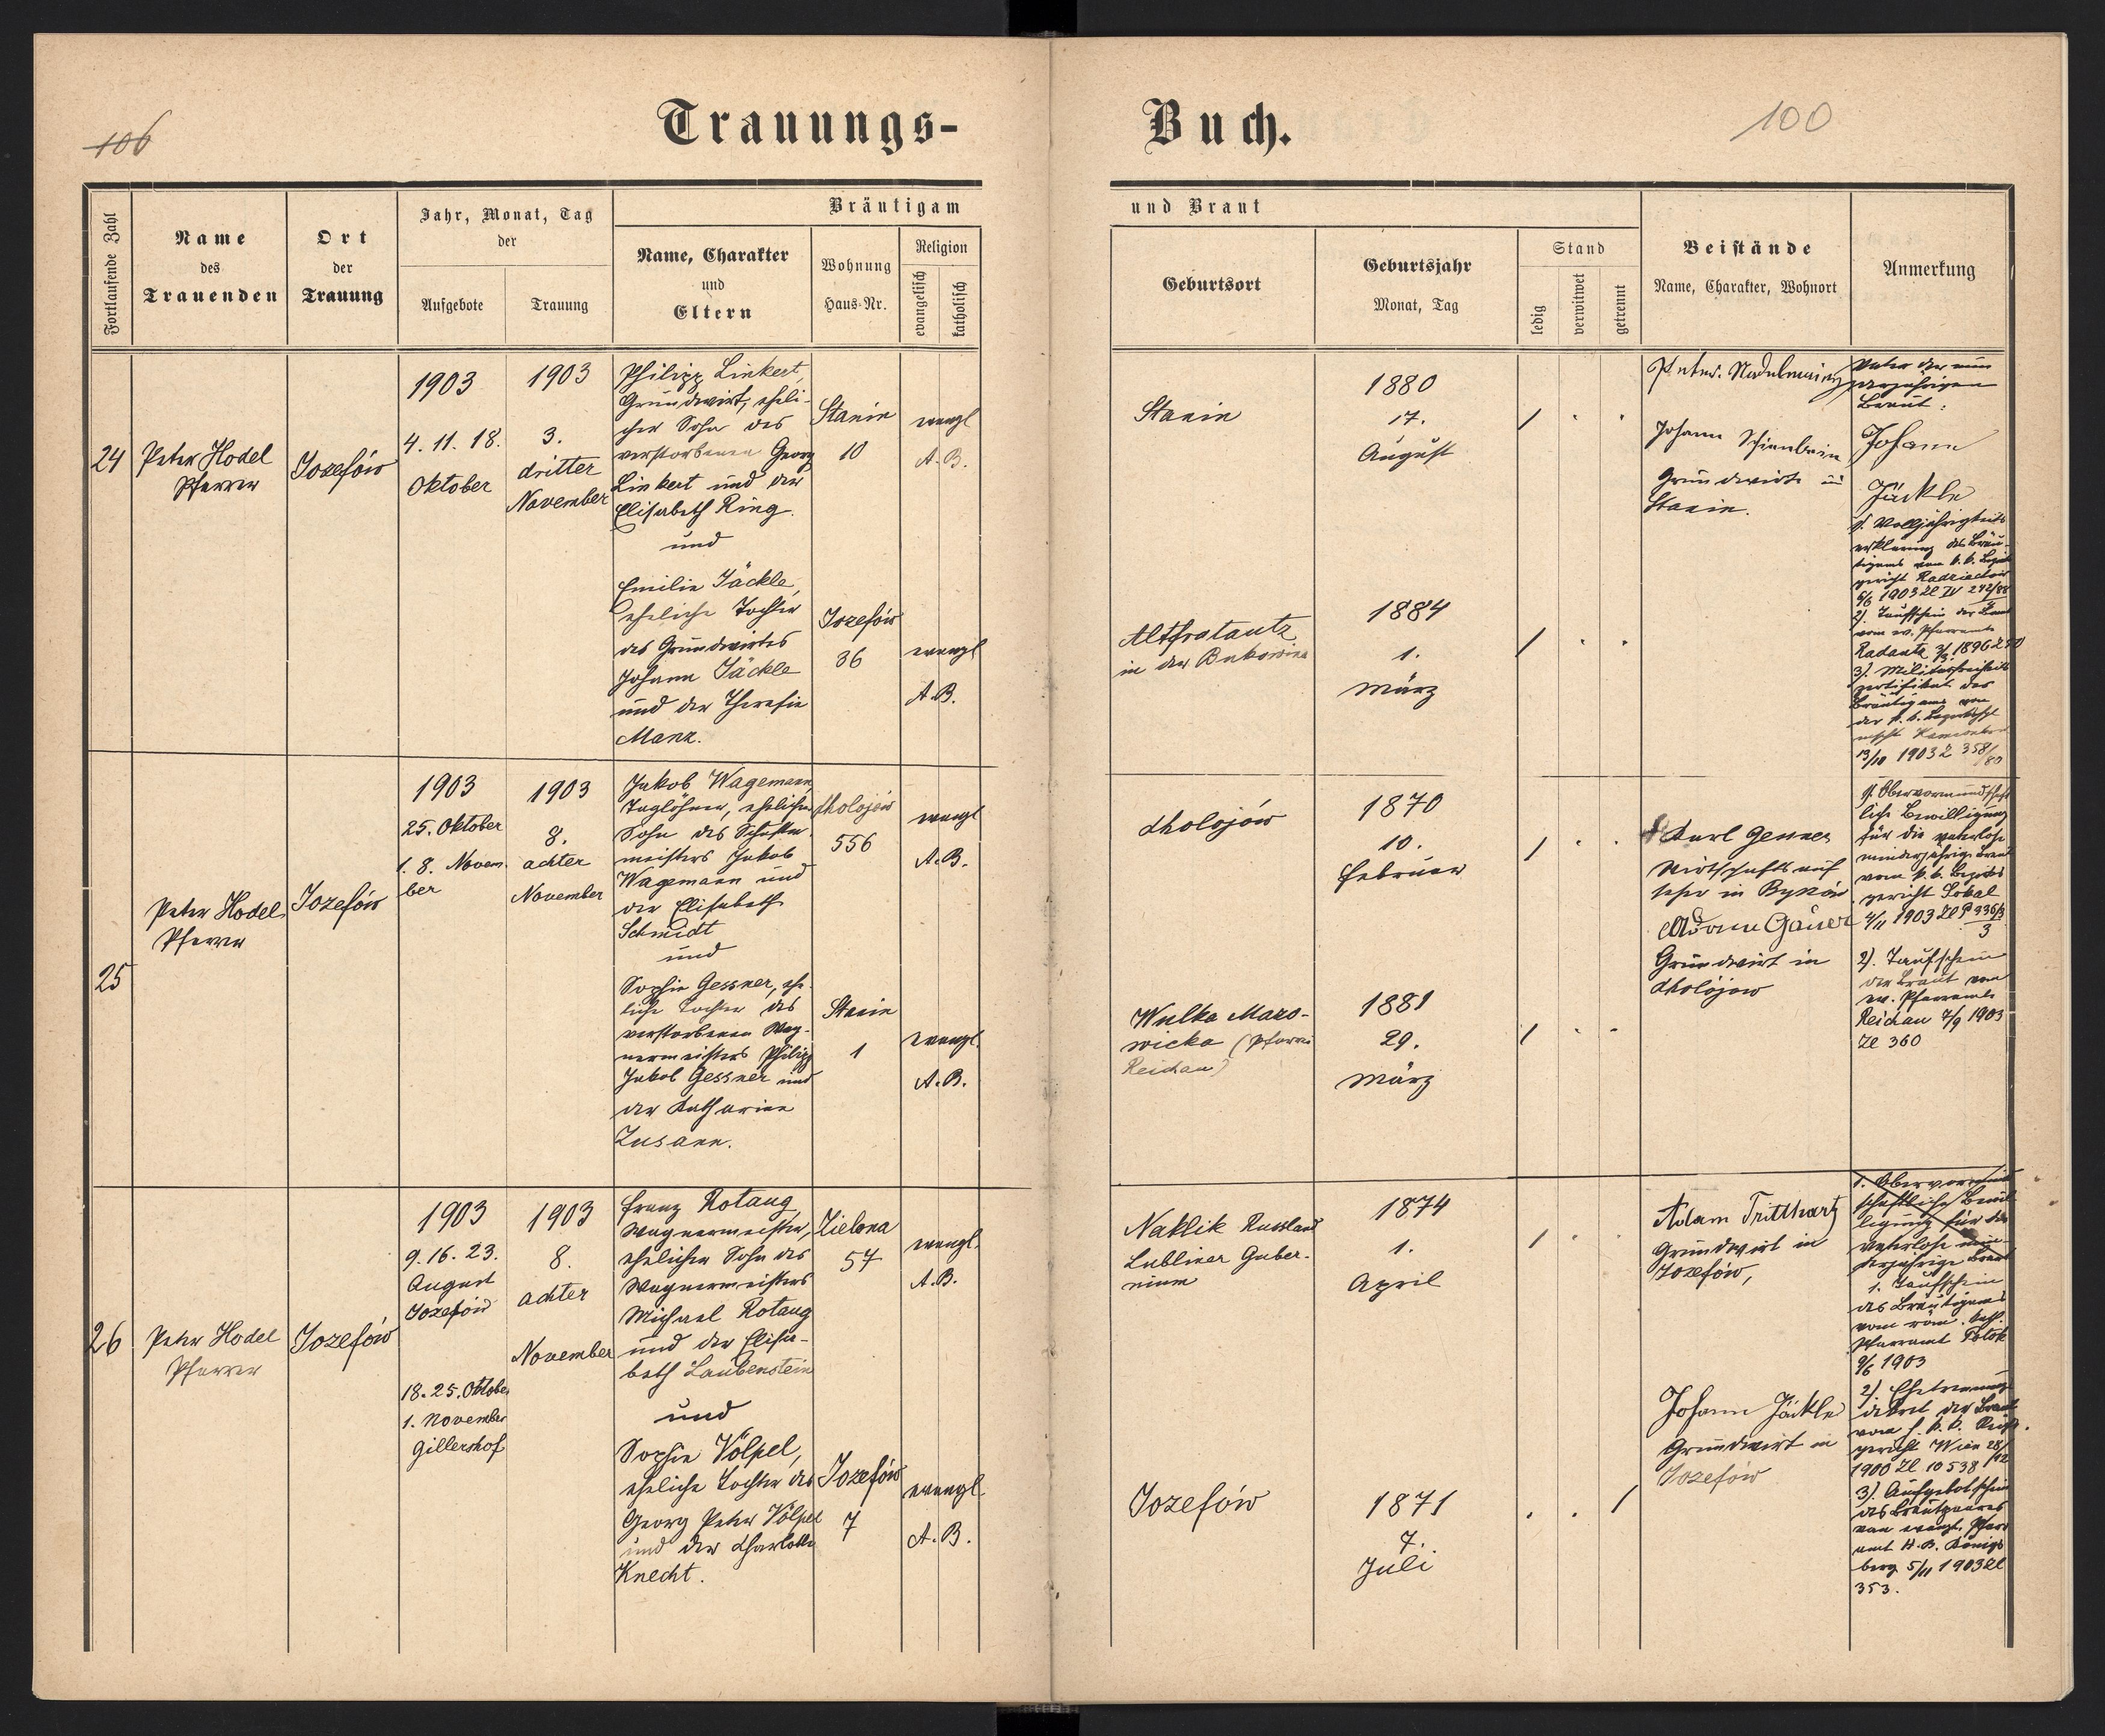 106
Trauungs-
Buch.
100
Fortlaufende Zahl
Name
des
Trauenden
Ort
der
Trauung
Jahr, Monat, Tag
der
Aufgebote
Trauung
Bräutigam
Name, Charakter
und
Eltern
Wohnung
Haus-Nr.
Religion
evangelisch
katholisch
und Braut
Geburtsort
Geburtsjahr
Monat, Tag
Stand
ledig
verwitwet
getrennt
Beistände
Name, Charakter, Wohnort
Anmerkung
24
Peter Hodel
Pfarrer
Jozefów
1903
4. 11. 18.
Oktober
1903
3.
dritter
November
Philipp Linkert,
Grundwirt, eheli-
cher Sohn des
verstorbenen Georg
Linkert und der
Elisabeth Ring.
und
Emilie Jäckle,
eheliche Tochter
des Grundwirtes
Johann Jäckle
und der Theresie
Manz.
Stanin
10
evangl
A.B.
Jozefów
36
evangl
A.B.
Stanin
1880
17.
August
Altfratautz
in der Bukowina
1884
1.
März
Johann
Grundwirte in
Stanin.
Vater der min
derjährigen
Braut:
Johann
Jäckle
1). Volljährigkeits
erklärung des Bräu-
tigams vom k.k. Bezirks
gericht Radziechów
1903 Zl IV
2). Taufschein der Braut
vom ev. Pfarramte
Radautz 1896
3). Militärfreiheits
zertifikat des
Bräutigams von
der k.k. Bezirkshpt
13/10 1903 Z 358/80
25
Peter Hodel
Pfarrer
Jozefów
1903
25. Oktober
1. 8. Novem-
ber
1903
8.
achter
November
Jakob Wagemann,
Taglöhner, ehelicher
Sohn des Schuster
meisters Jakob
Wagemann und
der Elisabeth
Schmidt
und
Sophie Gessner, ehe-
liche Tochter des
verstorbenen Wag-
nermeisters Philipp
Jakob Gessner und
der Katharine
Zusann.
Cholojów
556
evangl
A.B.
Stanin
1
evangl.
A.B.
Cholojów
1870
10.
Februar
Wulka Mazo-
wicka (Pfarre
Reichau)
1881
29.
März
Karl Gessner
Wirtschaftsauf
seher in
Adam Gauer
Grundwirt in
Cholojow
1). Obervormundschaft
liche Bewilligung
für die vaterlose
minderjährige Braut
vom k.k. Bezirks
gericht Sokal
4/11 1903 Zl P 336/3
3
2). Taufschein
der Braut vom
ev. Pfarramte
Reichau 7/9 1903
Zl 360
26
Peter Hodel
Pfarrer
Jozefów
1903
9. 16. 23.
August
Jozefów
18. 25. Oktober
1. November
Gillershof
1903
8.
achter
November
Franz Rotaug
Wagnermeister,
ehelicher Sohn des
Wagnermeisters
Michael Rotaug
und der Elisa-
beth Laubenstein
und
Sophie Völpel,
eheliche Tochter des
Georg Peter Völpel
und der Charlotte
Knecht.
Zielona
57
evangl.
A.B.
Jozefów
7
evangl.
A.B.
Naklik Russland
Lubliner Guber-
nium
1874
1.
April
Jozefów
1871
7.
Juli
Adam Tritthart
Grundwirt in
Jozefów,
Johann Jäckle
Grundwirt in
Jozefów
1. Obervormund
schaftliche Bewil
ligung für die
vaterlose min-
derjährige Braut
1. Taufschein
des Bräutigams
vom röm. kath.
Pfarramt Potok
9/6 1903
2). Ehetrennungs
dekret der Braut
vom
gericht Wien 28/12
1900 Zl 10538
3). Aufgebotschein
des Brautpaares
vom evangl. Pfarr
amt H.B. Königs
berg 5/11 1903 Zl
353.